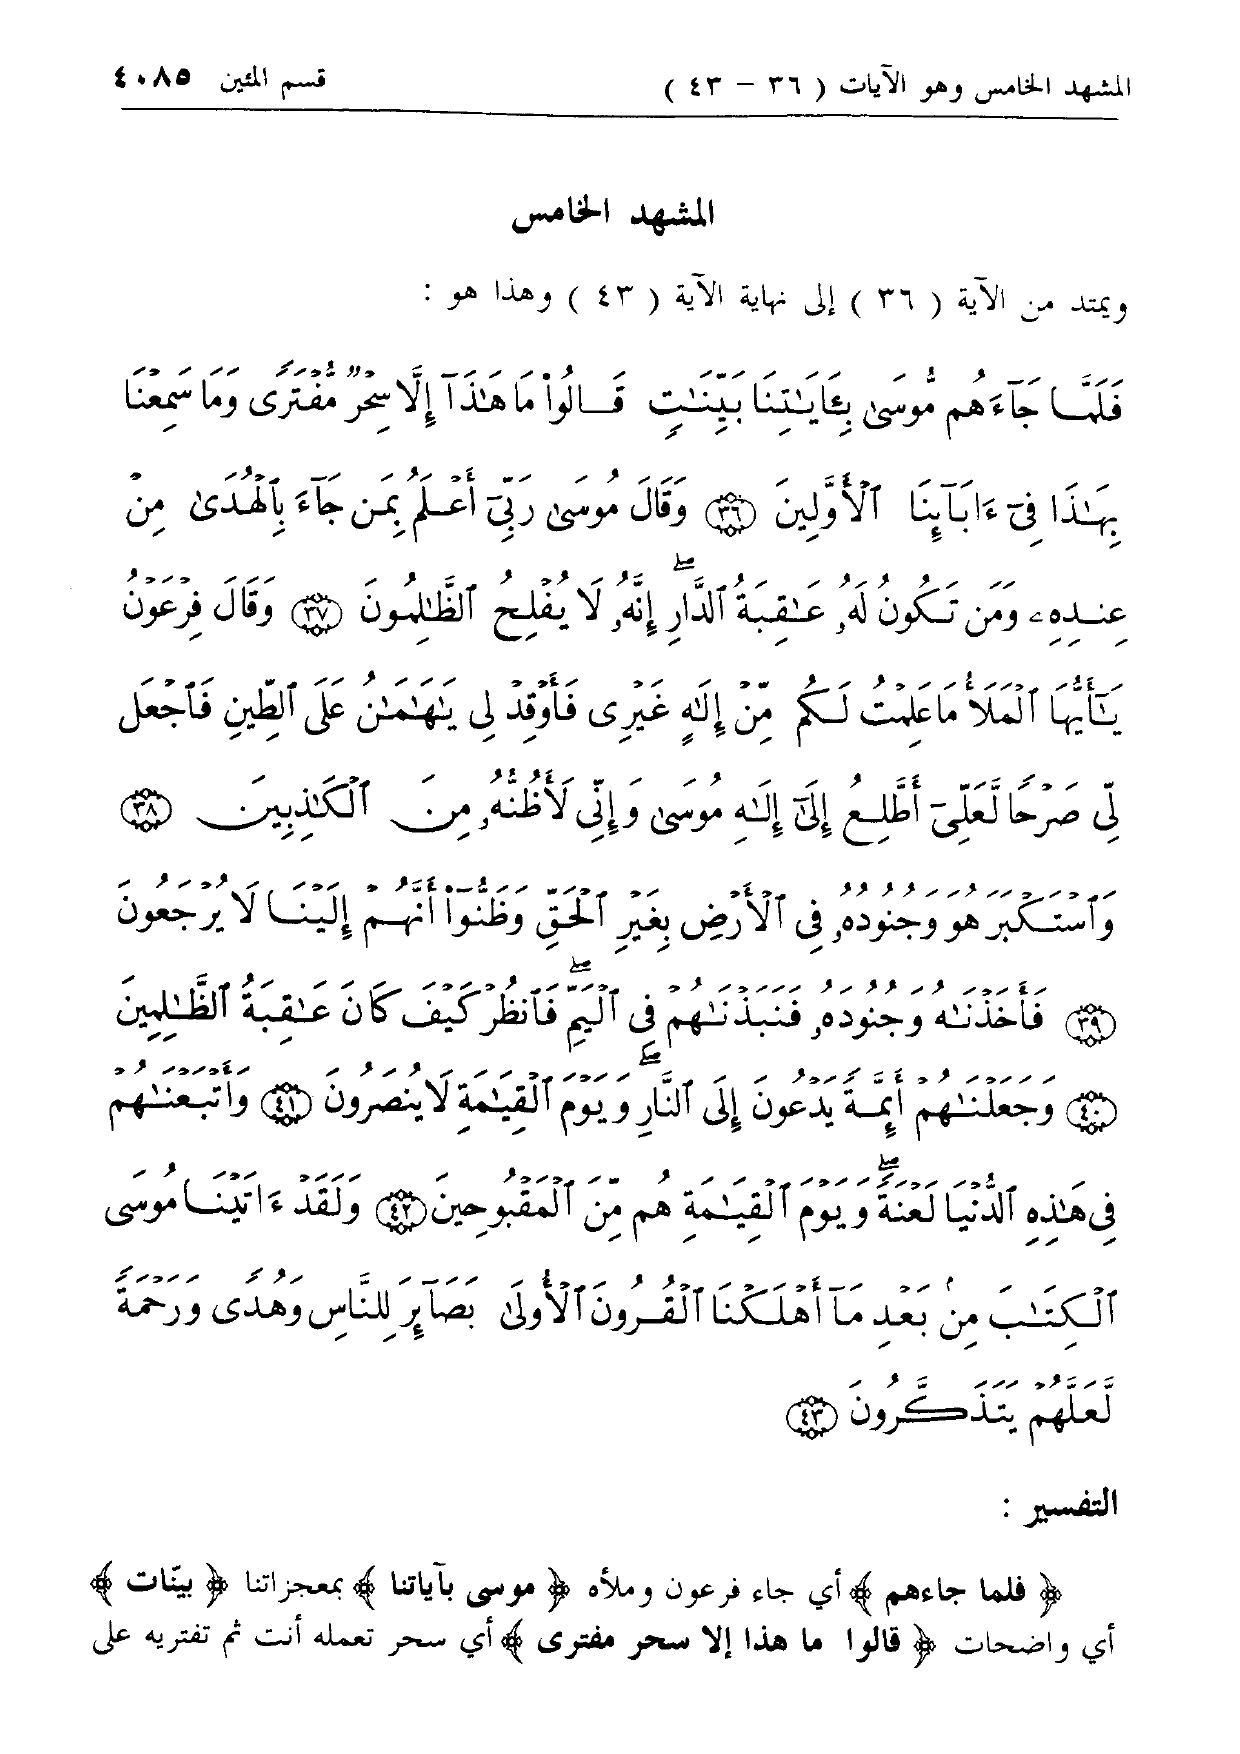 المشهد الخامس وهو الآيات ( ٣٦ - ٤٣ ) قسم المئين ٤٠٨٥
المشهد الخامس
ويمتد من الآية ( ٣٦ ) إلى نهاية الآية ( ٤٣ ) وهذا هو :
فَلَمَّا جَآءَهُم مُّوسَىٰ بِـَٔايَـٰتِنَا بَيِّنَـٰتٍ قَالُوا۟ مَا هَـٰذَآ إِلَّا سِحْرٌ مُّفْتَرًى وَمَا سَمِعْنَا
بِهَـٰذَا فِىٓ ءَابَآئِنَا ٱلْأَوَّلِينَ ﴿٣٦﴾ وَقَالَ مُوسَىٰ رَبِّىٓ أَعْلَمُ بِمَن جَآءَ بِٱلْهُدَىٰ مِنْ
عِندِهِۦ وَمَن تَكُونُ لَهُۥ عَـٰقِبَةُ ٱلدَّارِ ۖ إِنَّهُۥ لَا يُفْلِحُ ٱلظَّـٰلِمُونَ ﴿٣٧﴾ وَقَالَ فِرْعَوْنُ
يَـٰٓأَيُّهَا ٱلْمَلَأُ مَا عَلِمْتُ لَكُم مِّنْ إِلَـٰهٍ غَيْرِى فَأَوْقِدْ لِى يَـٰهَـٰمَـٰنُ عَلَى ٱلطِّينِ فَٱجْعَل
لِّى صَرْحًا لَّعَلِّىٓ أَطَّلِعُ إِلَىٰٓ إِلَـٰهِ مُوسَىٰ وَإِنِّى لَأَظُنُّهُۥ مِنَ ٱلْكَـٰذِبِينَ ﴿٣٨﴾
وَٱسْتَكْبَرَ هُوَ وَجُنُودُهُۥ فِى ٱلْأَرْضِ بِغَيْرِ ٱلْحَقِّ وَظَنُّوٓا۟ أَنَّهُمْ إِلَيْنَا لَا يُرْجَعُونَ
﴿٣٩﴾ فَأَخَذْنَـٰهُ وَجُنُودَهُۥ فَنَبَذْنَـٰهُمْ فِى ٱلْيَمِّ ۖ فَٱنظُرْ كَيْفَ كَانَ عَـٰقِبَةُ ٱلظَّـٰلِمِينَ
﴿٤٠﴾ وَجَعَلْنَـٰهُمْ أَئِمَّةً يَدْعُونَ إِلَى ٱلنَّارِ ۖ وَيَوْمَ ٱلْقِيَـٰمَةِ لَا يُنصَرُونَ ﴿٤١﴾ وَأَتْبَعْنَـٰهُمْ
فِى هَـٰذِهِ ٱلدُّنْيَا لَعْنَةً ۖ وَيَوْمَ ٱلْقِيَـٰمَةِ هُم مِّنَ ٱلْمَقْبُوحِينَ ﴿٤٢﴾ وَلَقَدْ ءَاتَيْنَا مُوسَى
ٱلْكِتَـٰبَ مِنۢ بَعْدِ مَآ أَهْلَكْنَا ٱلْقُرُونَ ٱلْأُولَىٰ بَصَآئِرَ لِلنَّاسِ وَهُدًى وَرَحْمَةً
لَّعَلَّهُمْ يَتَذَكَّرُونَ ﴿٤٣﴾
التفسير :
﴿ فلما جاءهم ﴾ أي جاء فرعون وملأه ﴿ موسى بآياتنا ﴾ بمعجزاتنا ﴿ بيّنات ﴾
أي واضحات ﴿ قالوا ما هذا إلا سحر مفترى ﴾ أي سحر تعمله أنت ثم تفتريه على